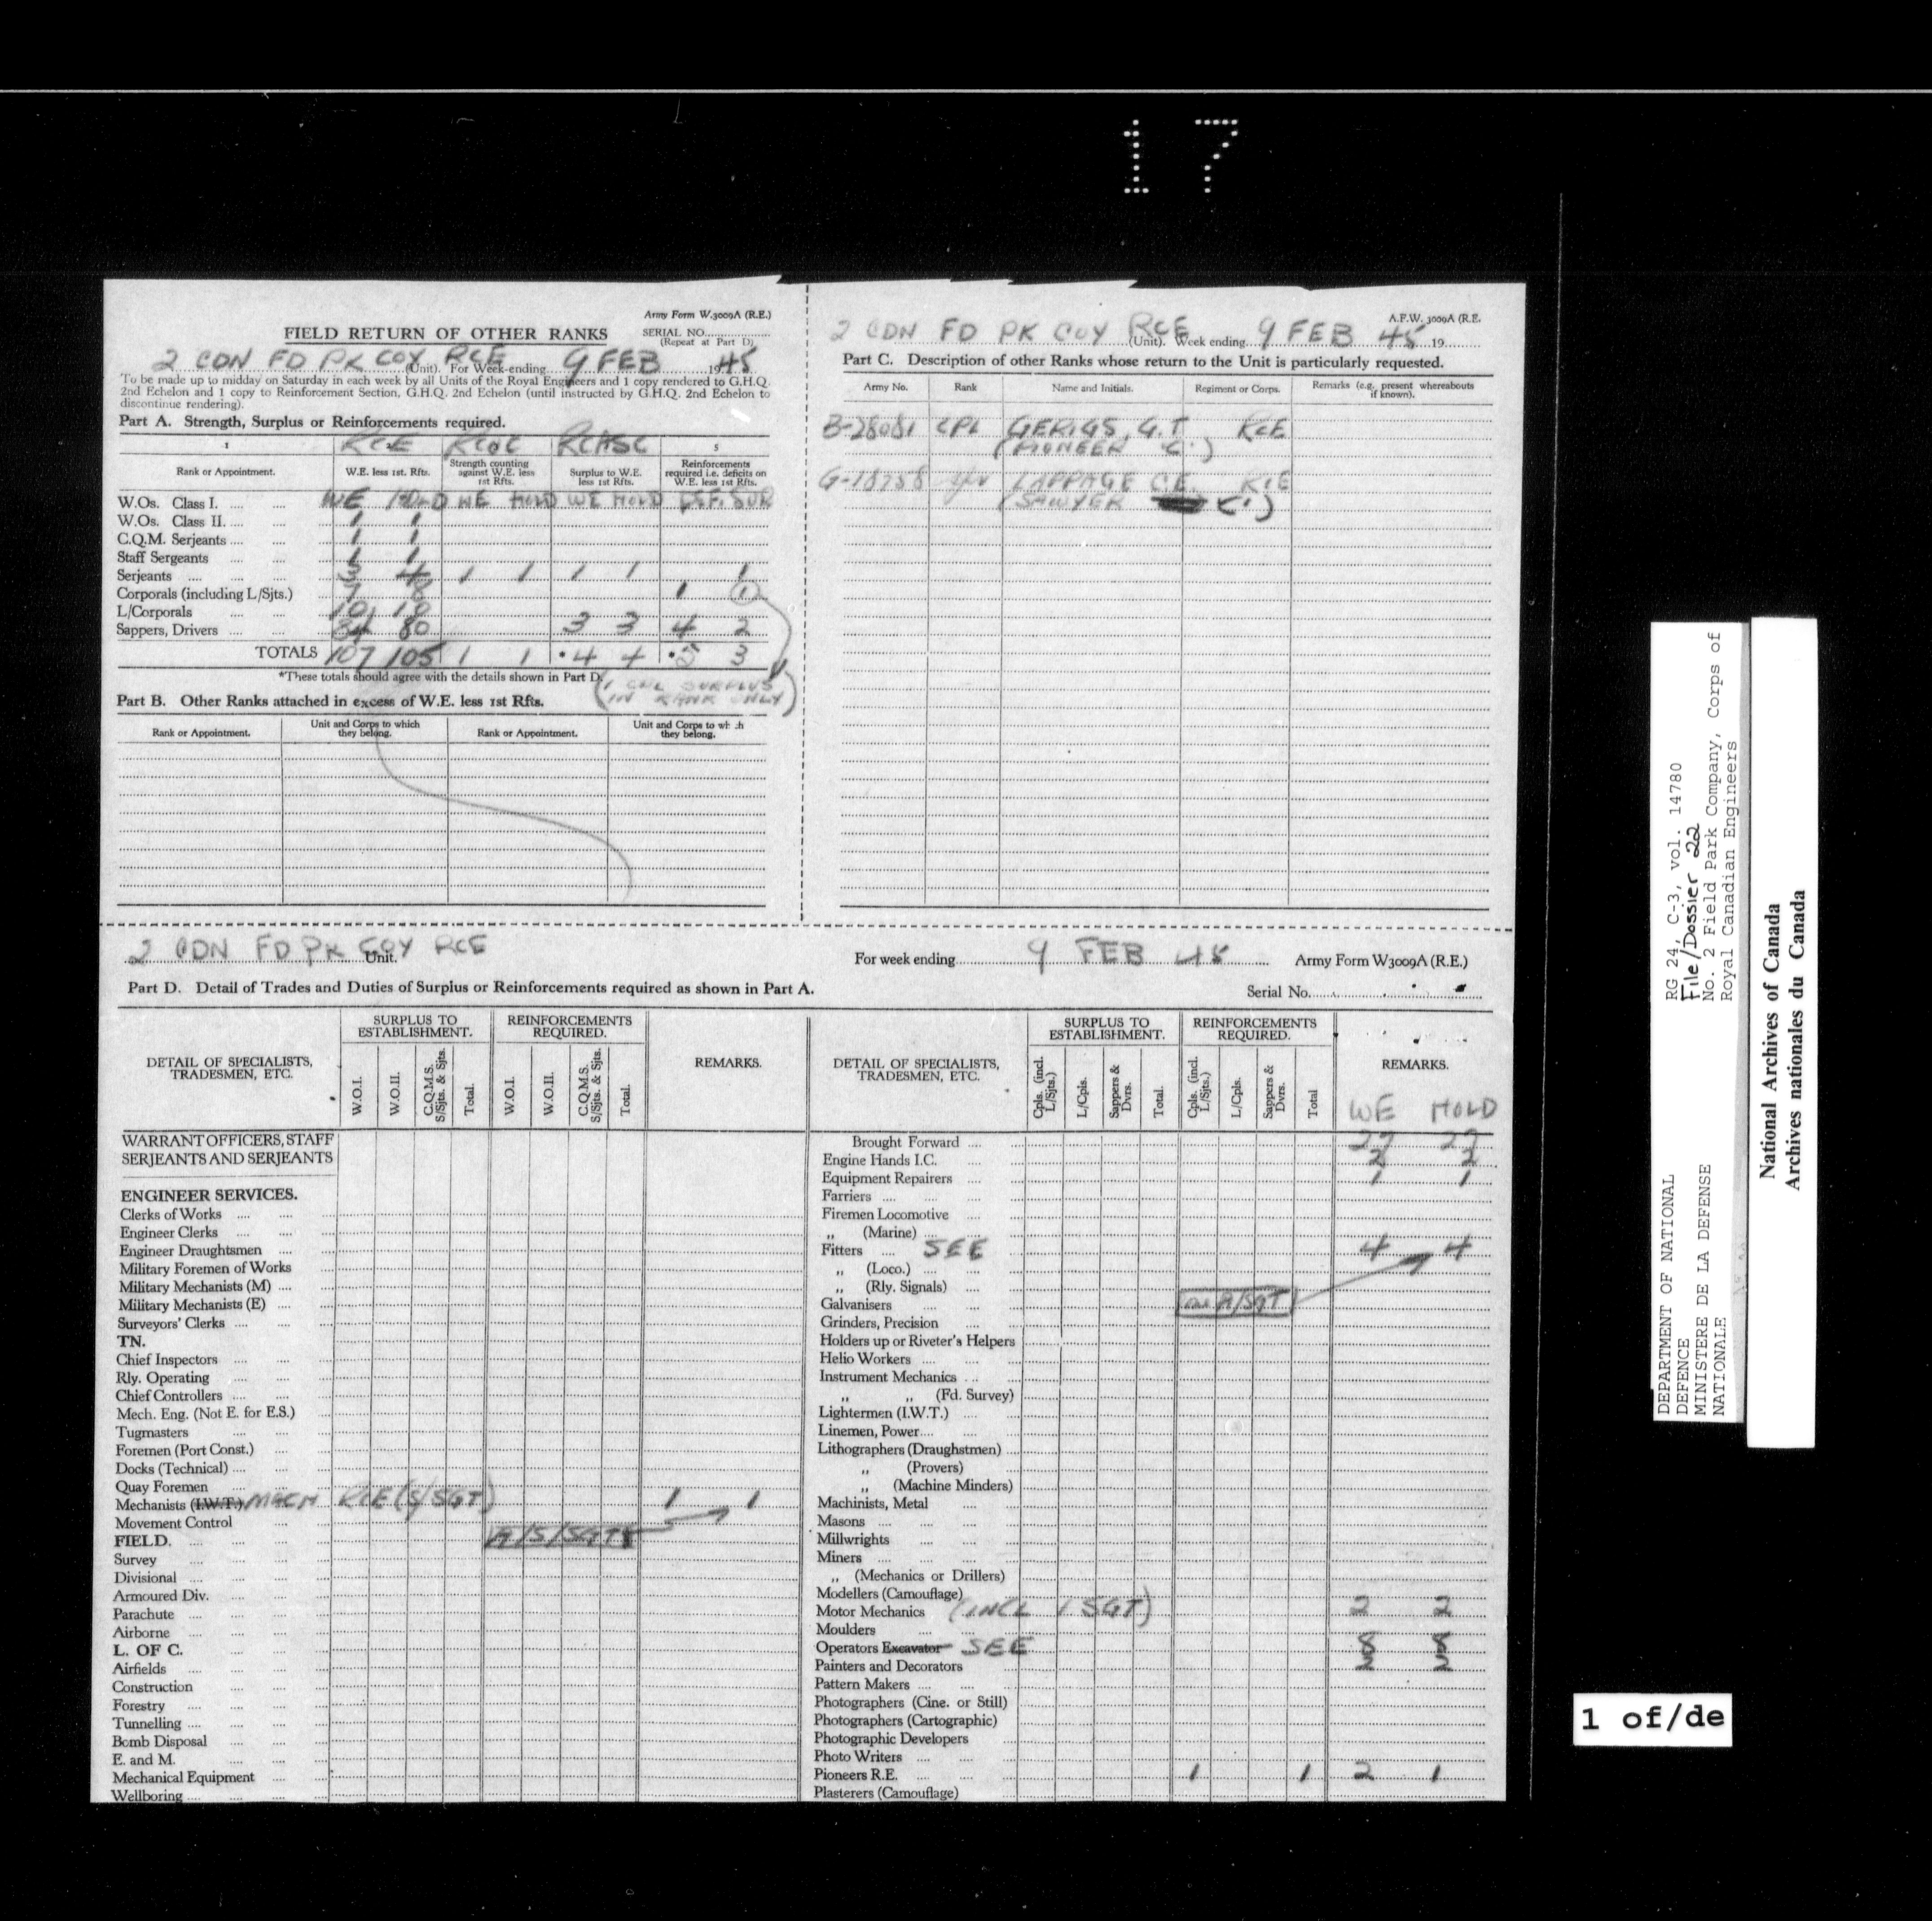 17
Army Form W.3009A (R.E.)
FIELD RETURN OF OTHER RANKS
SERIAL NO.
(Repeat at Part D)
2 CDN FD PK COY RCE (Unit). For Week-ending 9 FEB 1945
To be made up to midday on Saturday in each week by all Units of the Royal Engineers and 1 copy rendered to G.H.Q.
2nd Echelon and 1 copy to Reinforcement Section, G.H.Q. 2nd Echelon (until instructed by G.H.Q. 2nd Echelon to
discontinue rendering).
Part A. Strength, Surplus or Reinforcements required.
1 RCE RCOC RCASC 5
Rank or Appointment. W.E. less 1st. Rfts. Strength counting against W.E. less 1st Rfts. Surplus to W.E. less 1st Rfts. Reinforcements required i.e. deficits on W.E. less 1st Rfts.
W.Os. Class I. WE HOLD WE HOLD WE HOLD DEF. SUR
W.Os. Class II. 1 1
C.Q.M. Serjeants 1 1
Staff Sergeants 1 1
Serjeants 3 4 1 1 1 1 1
Corporals (including L/Sjts.) 7 8 1 1
L/Corporals 10 10
Sappers, Drivers 84 80 3 3 4 2
TOTALS 107 105 1 1 4 4 5 3
*These totals should agree with the details shown in Part D.
(1 CPL SURPLUS
IN RANK ONLY)
Part B. Other Ranks attached in excess of W.E. less 1st Rfts.
Rank or Appointment. Unit and Corps to which they belong. Rank or Appointment. Unit and Corps to wh ch they belong.
A.F.W. 3009A (R.E.
2 CDN FD PK COY RCE (Unit). Week ending 9 FEB 45 19
Part C. Description of other Ranks whose return to the Unit is particularly requested.
Army No. Rank Name and Initials. Regiment or Corps. Remarks (e.g. present whereabouts if known).
B-28081 CPL GERIGS, G.T. RCE
(PIONEER C)
G-18758 LAPPAGE C.E. RCE
(SAWYER C)
2 CDN FD PK COY RCE Unit.
For week ending 9 FEB 45 Army Form W3009A (R.E.)
Part D. Detail of Trades and Duties of Surplus or Reinforcements required as shown in Part A.
Serial No.
DETAIL OF SPECIALISTS, TRADESMEN, ETC.
SURPLUS TO ESTABLISHMENT.
REINFORCEMENTS REQUIRED.
REMARKS.
W.O.I. W.O.II. C.Q.M.S. S/Sjts. & Sjts. Total. W.O.I. W.O.II. C.Q.M.S. S/Sjts. & Sjts. Total.
WARRANT OFFICERS, STAFF
SERJEANTS AND SERJEANTS
ENGINEER SERVICES.
Clerks of Works
Engineer Clerks
Engineer Draughtsmen
Military Foremen of Works
Military Mechanists (M)
Military Mechanists (E)
Surveyors' Clerks
TN.
Chief Inspectors
Rly. Operating
Chief Controllers
Mech. Eng. (Not E. for E.S.)
Tugmasters
Foremen (Port Const.)
Docks (Technical)
Quay Foremen
Mechanists (I.W.T.) MACH RCE (S/SGT) 1 1
Movement Control
A/S/SGT
FIELD.
Survey
Divisional
Armoured Div.
Parachute
Airborne
L. OF C.
Airfields
Construction
Forestry
Tunnelling
Bomb Disposal
E. and M.
Mechanical Equipment
Wellboring
DETAIL OF SPECIALISTS, TRADESMEN, ETC.
SURPLUS TO ESTABLISHMENT.
REINFORCEMENTS REQUIRED.
REMARKS.
Cpls. (incl. L/Sjts.) L/Cpls. Sappers & Dvrs. Total. Cpls. (incl. L/Sjts.) L/Cpls. Sappers & Dvrs. Total
WE HOLD
Brought Forward 27 27
Engine Hands I.C. 2 2
Equipment Repairers 1 1
Farriers
Firemen Locomotive
,, (Marine)
Fitters SEE 4 4
,, (Loco.)
,, (Rly. Signals)
Galvanisers A/SGT
Grinders, Precision
Holders up or Riveter's Helpers
Helio Workers
Instrument Mechanics
,, ,, (Fd. Survey)
Lightermen (I.W.T.)
Linemen, Power
Lithographers (Draughstmen)
,, (Provers)
,, (Machine Minders)
Machinists, Metal
Masons
Millwrights
Miners
,, (Mechanics or Drillers)
Modellers (Camouflage)
Motor Mechanics (INCL 1 SGT) 2 2
Moulders
Operators Excavator SEE 8 8
Painters and Decorators 2 2
Pattern Makers
Photographers (Cine. or Still)
Photographers (Cartographic)
Photographic Developers
Photo Writers
Pioneers R.E. 1 1 2 1
Plasterers (Camouflage)
RG 24, C-3, vol. 14780
File/Dossier 22
No. 2 Field Park Company, Corps of
Royal Canadian Engineers
DEPARTMENT OF NATIONAL
DEFENCE
MINISTERE DE LA DEFENSE
NATIONALE
National Archives of Canada
Archives nationales du Canada
1 of/de